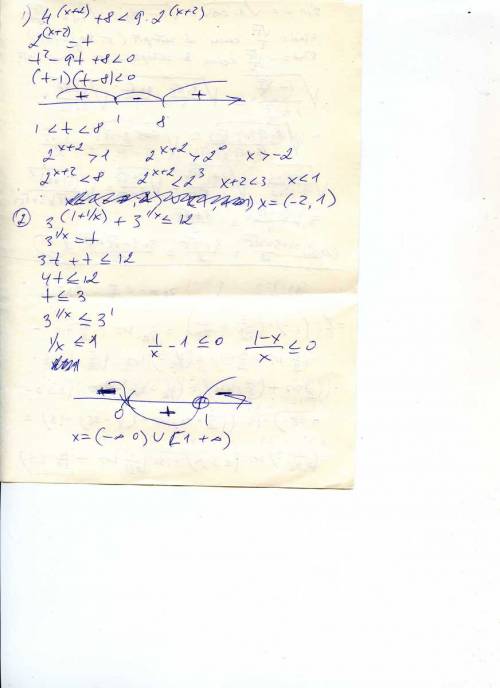 1) 4^(x+2) + 8 < 9 · 2^(x+2)
2^(x+2) = t
t² - 9t + 8 < 0
(t-1)(t-8) < 0
+ - +
1 8
1 < t < 8
2^x+2 > 1 2^x+2 > 2^0 x > -2
2^x+2 < 8 2^x+2 < 2^3 x+2 < 3 x < 1
x = (-2, 1)
2) 3^(1+1/x) + 3^1/x ≤ 12
3^1/x = t
3t + t ≤ 12
4t ≤ 12
t ≤ 3
3^1/x ≤ 3^1
1/x ≤ 1 1/x - 1 ≤ 0 (1-x)/x ≤ 0
- + -
0 1
x = (-∞ 0) ∪ [1 +∞)